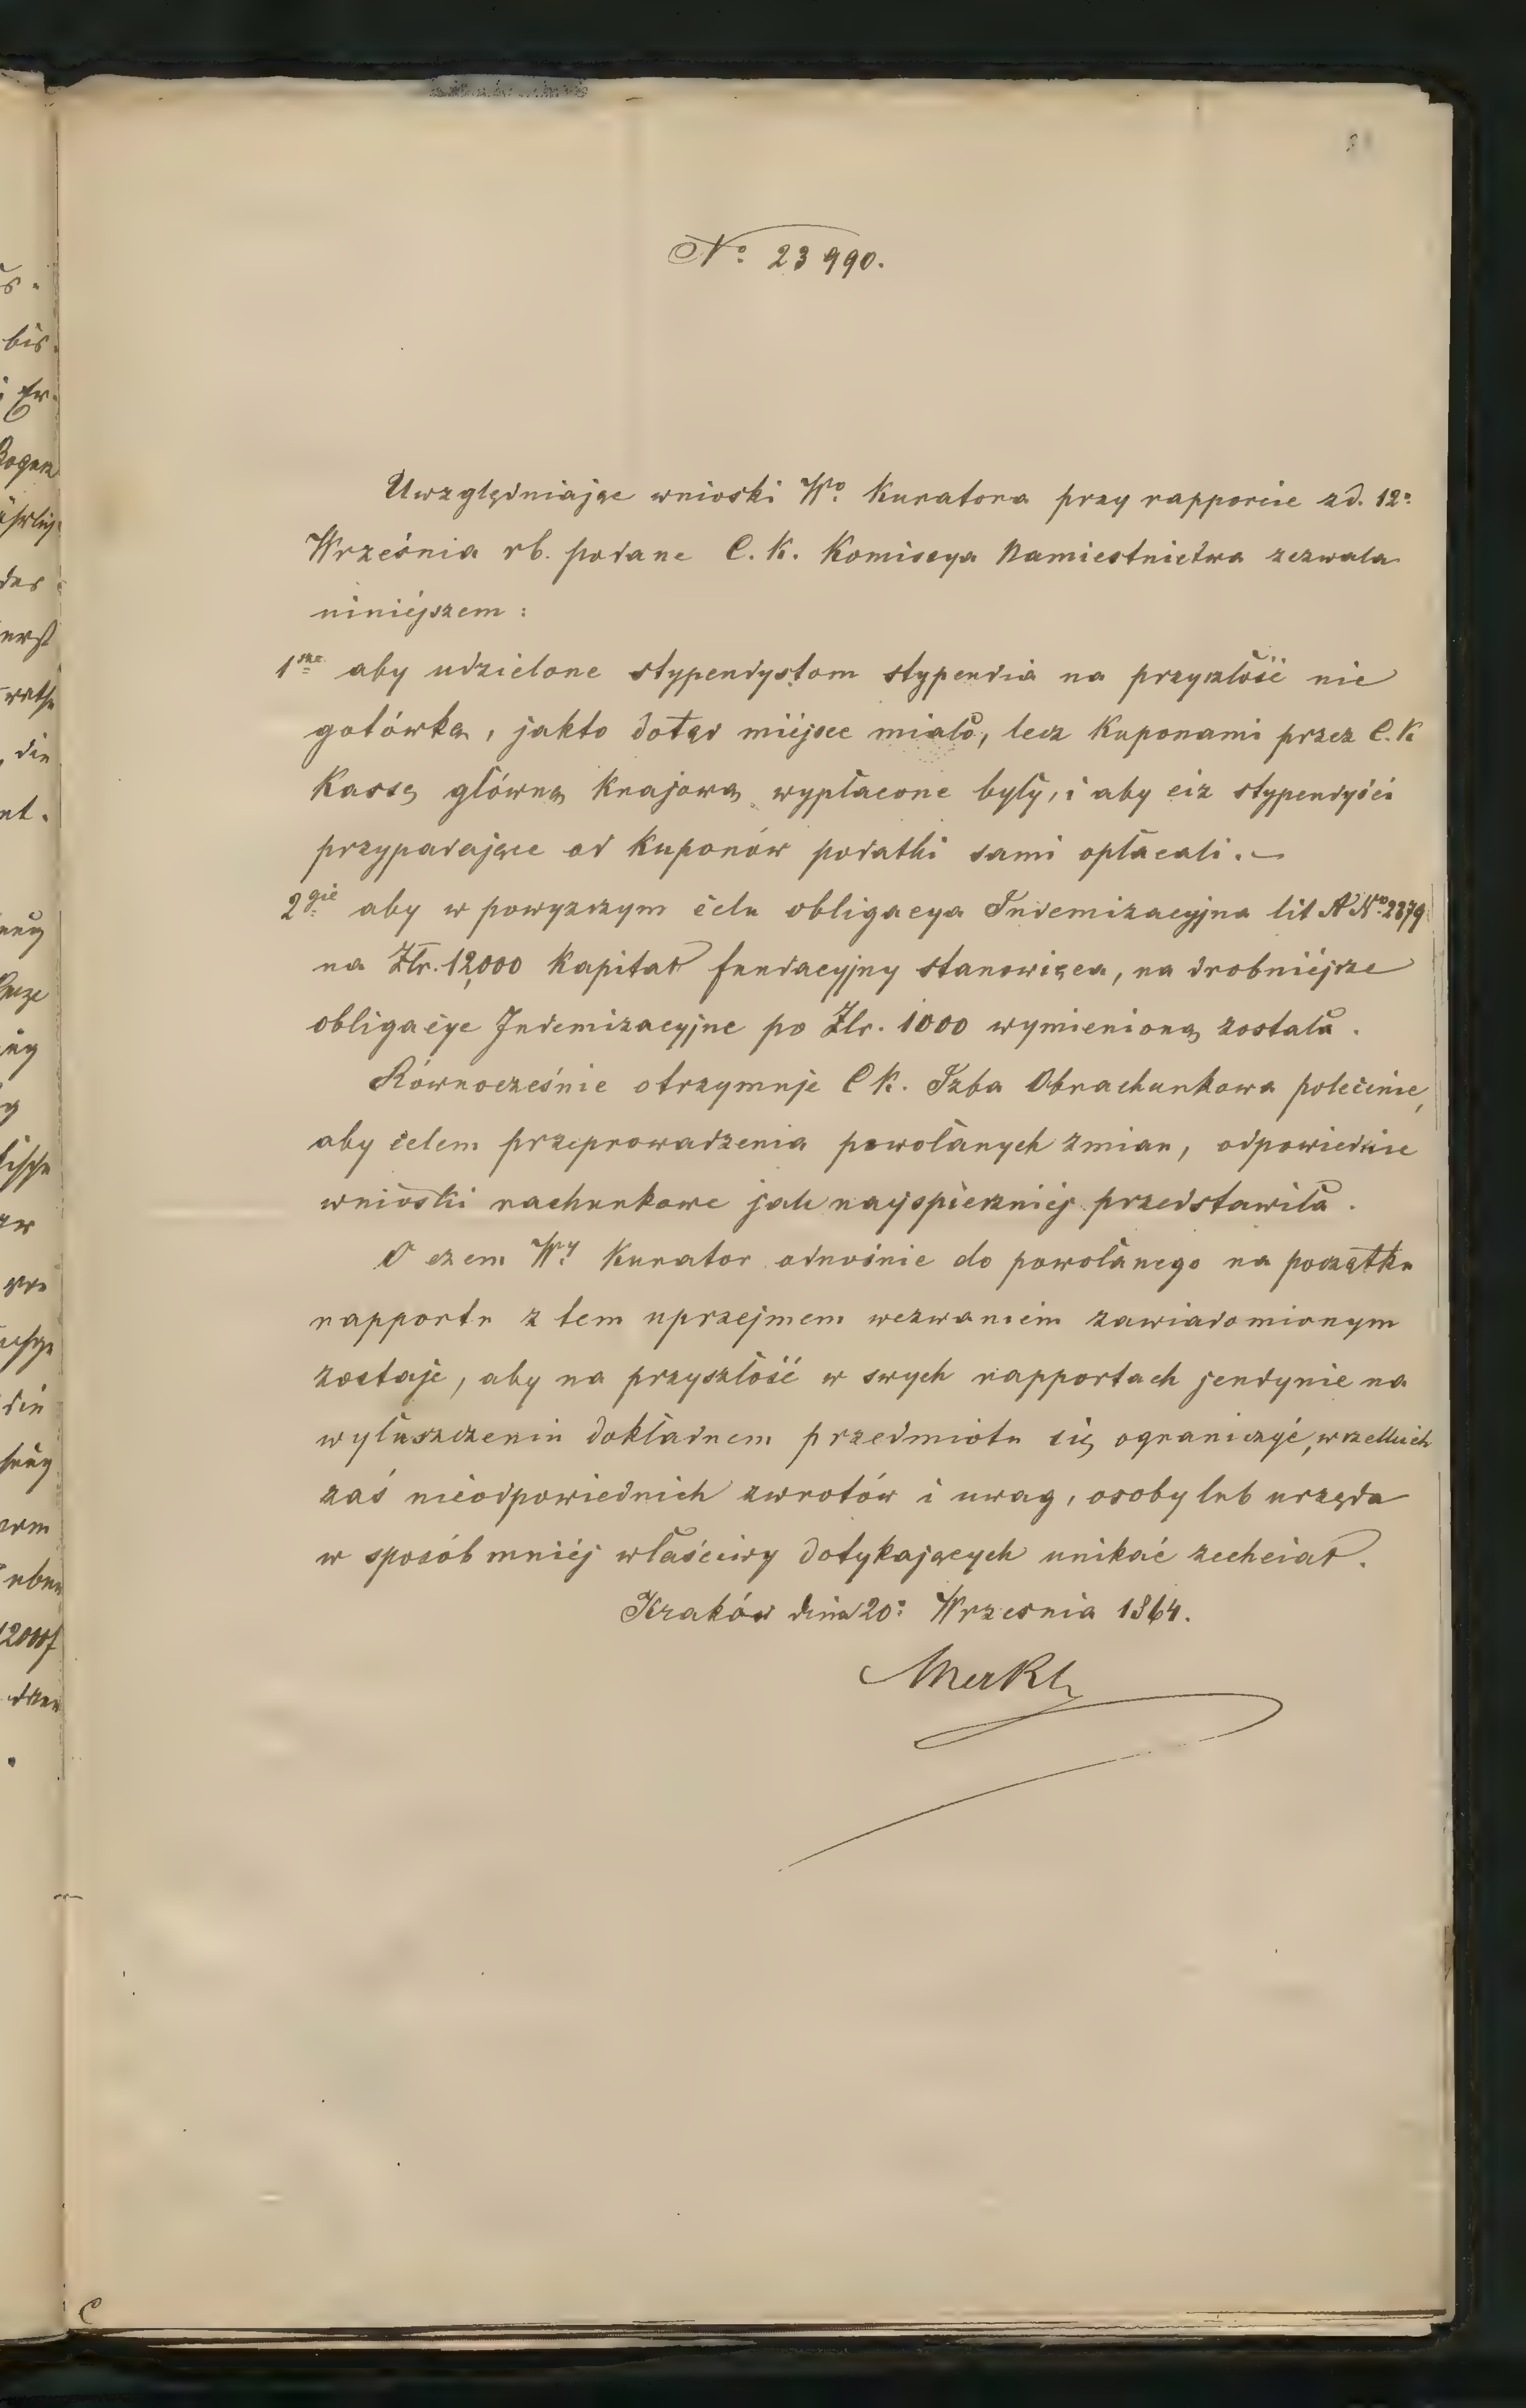 No 23990.
Uwzględniając wnioski Wo Kuratora przy rapporcie z d. 12o
Września rb. podane C. K. Komisya Namiestnictwa zezwala
niniéjszem :
1sze aby udzielone stypendystom stypendia na przyszłość nie
gotówką, jakto dotąd miéjsce miało, lecz Kuponami przez C. K
Kassę główną Krajową wypłacone były, i aby ciż stypendyści
przypadające od Kuponów podatki sami opłacali. —
2gie aby w powyższym celu obligacya Indemizacyjna lit A No 2879
na Złr. 12,000 Kapitał fundacyjny stanowiąca, na drobniéjsze
obligacye Indemizacyjne po Złr. 1000 wymienioną została .
Równocześnie otrzymuje C K. Izba Obrachunkowa polecenie,
aby celem przeprowadzenia powołanych zmian, odpowiednie
wnioski rachunkowe jak nayspieszniéj przedstawiła .
O czem Wy Kurator odnośnie do powołanego na początku
rapportu z tem uprzejmem wezwaniem zawiadomionym
zostaje, aby na przyszłość w swych rapportach jendynie na
wyłuszczeniu dokładnem przedmiotu się ograniczyć, wszelkich
zaś nieodpowiednich zwrotów i uwag, osoby lub urzęda
w sposób mniéj właściwy dotykających unikać zechciał.
Kraków dnia 20o Wrzesnia 1864.
Merkl